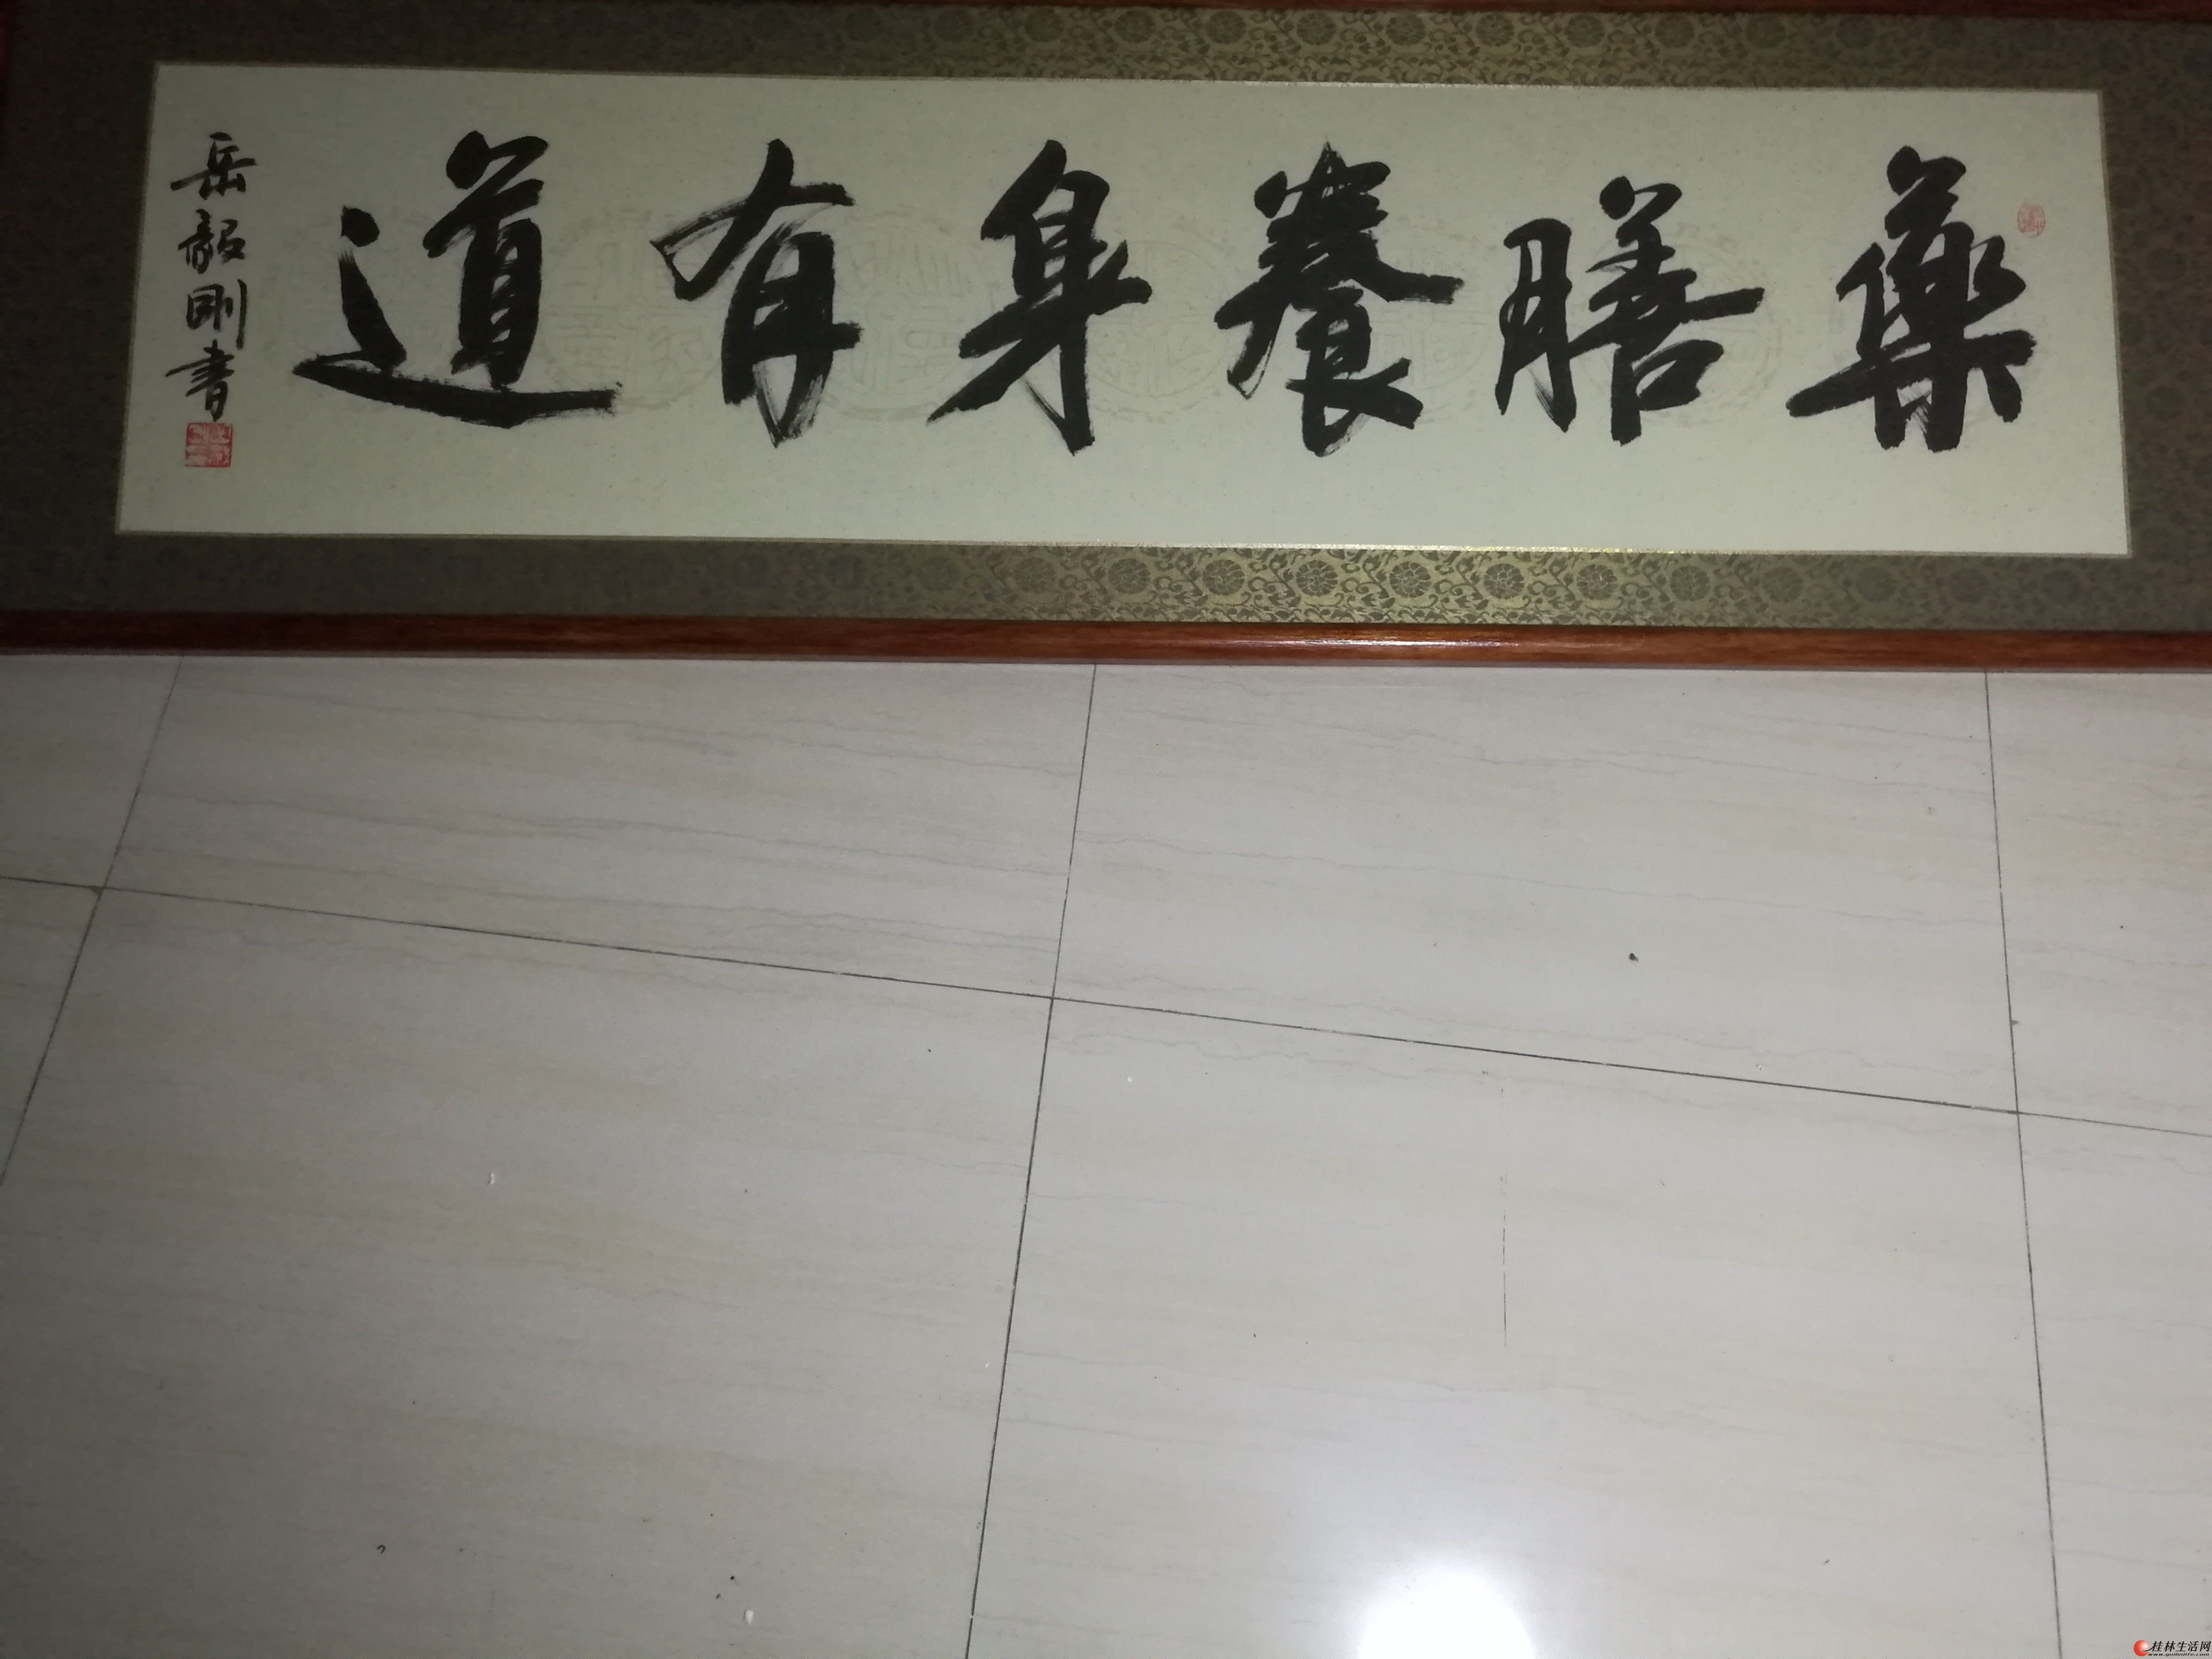 藥膳養身有道
岳韶剛書
桂林生活网
www.guilinlife.com